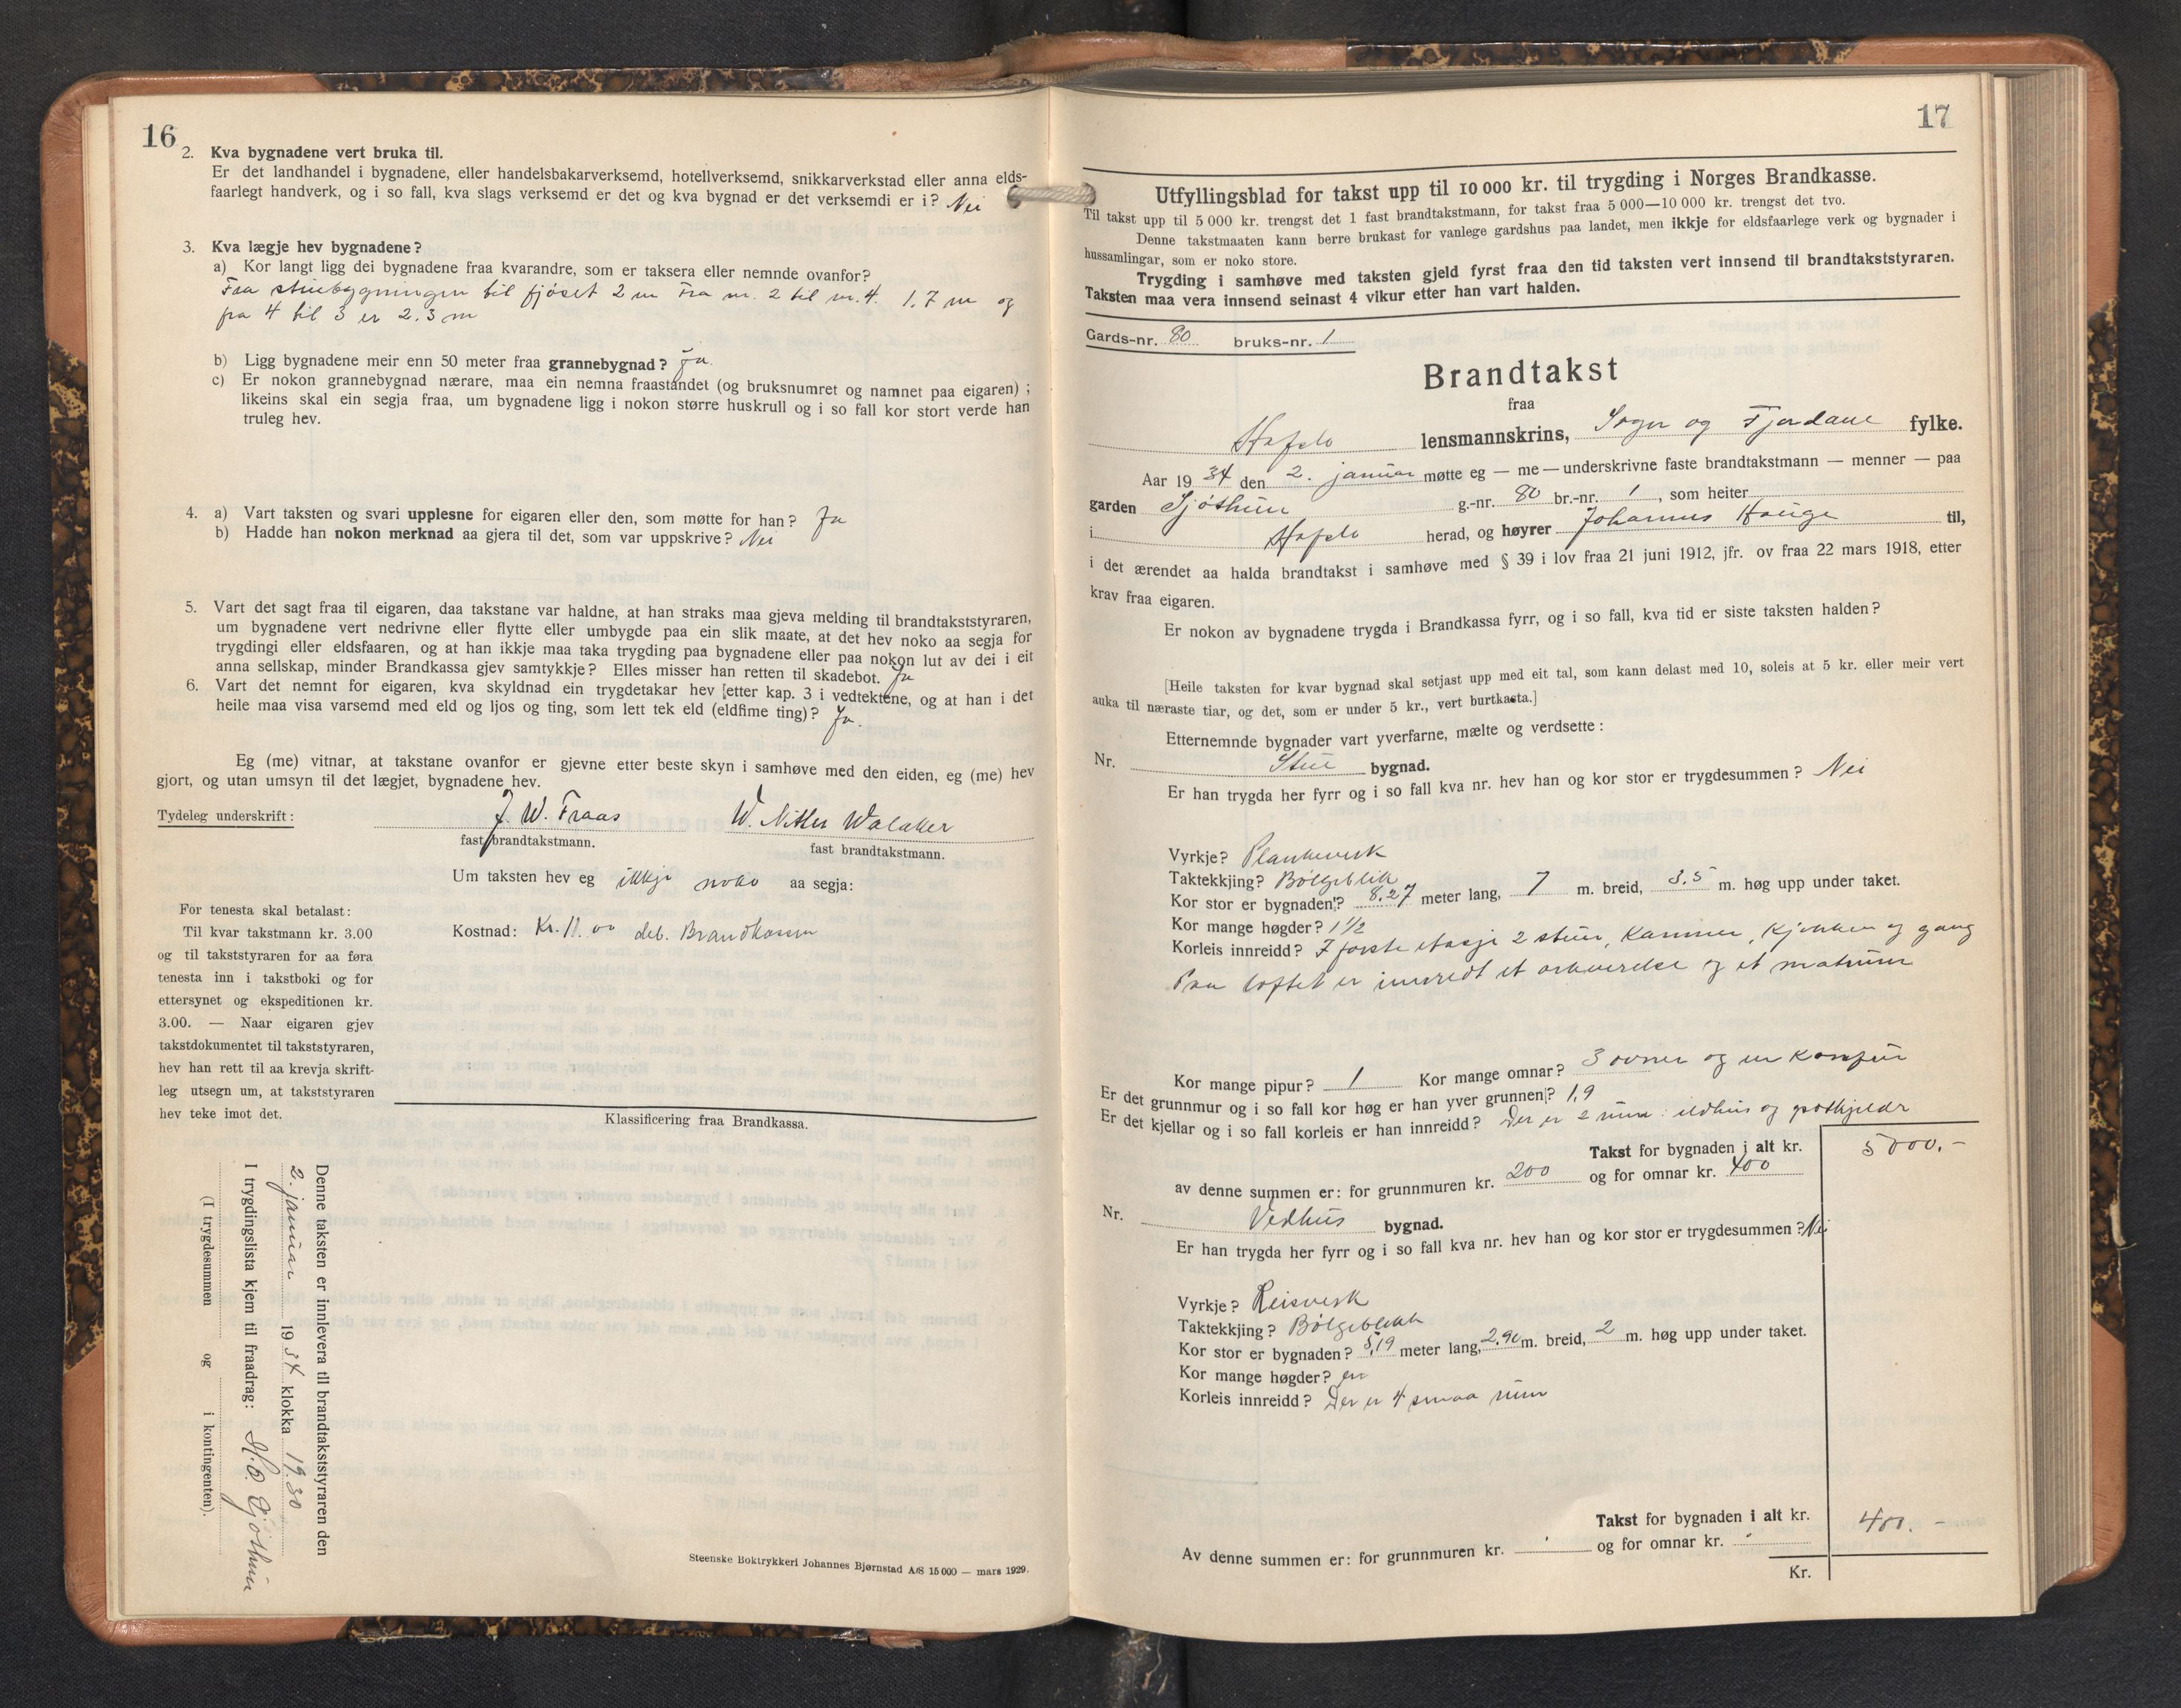 16
2. Kva bygnadene vert bruka til.
Er det landhandel i bygnadene, eller handelsbakarverksemd, hotellverksemd, snikkarverkstad eller anna elds-
faarlegt handverk, og i so fall, kva slags verksemd er det og kva bygnad er det verksemdi er i? Nei
3. Kva lægje hev bygnadene?
a) Kor langt ligg dei bygnadene fraa kvarandre, som er taksera eller nemnde ovanfor?
Fraa stuebygningen til fjöset 2 m Fra nr. 2 til nr. 4. 1,7 m og
fra 4 til 3 er 2.3 m
b) Ligg bygnadene meir enn 50 meter fraa grannebygnad? Ja.
c) Er nokon grannebygnad nærare, maa ein nemna fraastandet (og bruksnumret og namnet paa eigaren) ;
likeins skal ein segja fraa, um bygnadene ligg i nokon større huskrull og i so fall kor stort verde han
truleg hev.
4. a) Vart taksten og svari upplesne for eigaren eller den, som møtte for han? Ja
b) Hadde han nokon merknad aa gjera til det, som var uppskrive? Nei
5. Vart det sagt fraa til eigaren, daa takstane var haldne, at han straks maa gjeva melding til brandtakststyraren,
um bygnadene vert nedrivne eller flytte eller umbygde paa ein slik maate, at det hev noko aa segja for
trygdingi eller eldsfaaren, og at han ikkje maa taka trygding paa bygnadene eller paa nokon lut av dei i eit
anna sellskap, minder Brandkassa gjev samtykkje? Elles misser han retten til skadebot. Ja
6. Vart det nemnt for eigaren, kva skyldnad ein trygdetakar hev [etter kap. 3 i vedtektene, og at han i det
heile maa visa varsemd med eld og ljos og ting, som lett tek eld (eldfime ting)? Ja.
Eg (me) vitnar, at takstane ovanfor er gjevne etter beste skyn i samhøve med den eiden, eg (me) hev
gjort, og utan umsyn til det lægjet, bygnadene hev.
Tydeleg underskrift: J. W. Fraas W. Nitter Walaker
fast brandtakstmann. fast brandtakstmann.
Um taksten hev eg ikkje noko aa segja:
Kostnad: Kr. 11.00 deb. Brandkassen
For tenesta skal betalast:
Til kvar takstmann kr. 3.00
og til takststyraren for aa føra
tenesta inn i takstboki og for
ettersynet og ekspeditionen kr.
3.00. — Naar eigaren gjev
takstdokumentet til takststyraren,
hev han rett til aa krevja skrift-
leg utsegn um, at takststyraren
hev teke imot det.
Klassificering fraa Brandkassa.
Denne taksten er innlevera til brandtakststyraren den
2. januar 1934 klokka 19.30
I trygdingslista kjem til fraadrag: H. O. Gjöthun
(I trygdesummen og i kontingenten).
Steenske Boktrykkeri Johannes Bjørnstad A/S 15 000 — mars 1929.
17
Utfyllingsblad for takst upp til 10 000 kr. til trygding i Norges Brandkasse.
Til takst upp til 5 000 kr. trengst det 1 fast brandtakstmann, for takst fraa 5 000—10 000 kr. trengst det tvo.
Denne takstmaaten kann berre brukast for vanlege gardshus paa landet, men ikkje for eldsfaarlege verk og bygnader i
hussamlingar, som er noko store.
Trygding i samhøve med taksten gjeld fyrst fraa den tid taksten vert innsend til brandtakststyraren.
Taksten maa vera innsend seinast 4 vikur etter han vart halden.
Gards-nr. 80 bruks-nr. 1
Brandtakst
fraa
Hafslo lensmannskrins, Sogn og Fjordane fylke.
Aar 1934 den 2. januar møtte eg — me — underskrivne faste brandtakstmann — menner — paa
garden Gjöthun g.-nr. 80 br.-nr. 1, som heiter
i Hafslo herad, og høyrer Johannes Hauge til,
i det ærendet aa halda brandtakst i samhøve med § 39 i lov fraa 21 juni 1912, jfr. ov fraa 22 mars 1918, etter
krav fraa eigaren.
Er nokon av bygnadene trygda i Brandkassa fyrr, og i so fall, kva tid er siste taksten halden?
[Heile taksten for kvar bygnad skal setjast upp med eit tal, som kann delast med 10, soleis at 5 kr. eller meir vert
auka til næraste tiar, og det, som er under 5 kr., vert burtkasta.]
Etternemnde bygnader vart yverfarne, mælte og verdsette:
Nr. Stue bygnad.
Er han trygda her fyrr og i so fall kva nr. hev han og kor stor er trygdesummen? Nei
Vyrkje? Plankeverk
Taktekkjing? Bölgeblik
Kor stor er bygnaden? 8.27 meter lang, 7 m. breid, 3.5 m. høg upp under taket.
Kor mange høgder? 1 1/2
Korleis innreidd? I förste etasje 2 stuer, Kammer, Kjökken og gang
Paa loftet er innredt et arkverelse og et matrum
Kor mange pipur? 1 Kor mange omnar? 3 ovner og en Komfur
Er det grunnmur og i so fall kor høg er han yver grunnen? 1,9
Er det kjellar og i so fall korleis er han innreidd? Der er 2 rum: eldhus og potkjeldr
Takst for bygnaden i alt kr. 5000.-
av denne summen er: for grunnmuren kr. 200 og for omnar kr. 400
Nr. Vedhus bygnad.
Er han trygda her fyrr og i so fall kva nr. hev han og kor stor er trygdesummen? Nei
Vyrkje? Reisverk
Taktekkjing? Bölgeblikk
Kor stor er bygnaden? 5,19 meter lang, 2.90 m. breid, 2 m. høg upp under taket.
Kor mange høgder? en
Korleis innreidd? Der er 4 smaa rum
Takst for bygnaden i alt kr. 400.-
Av denne summen er: for grunnmuren kr. og for omnar kr.
Kr.